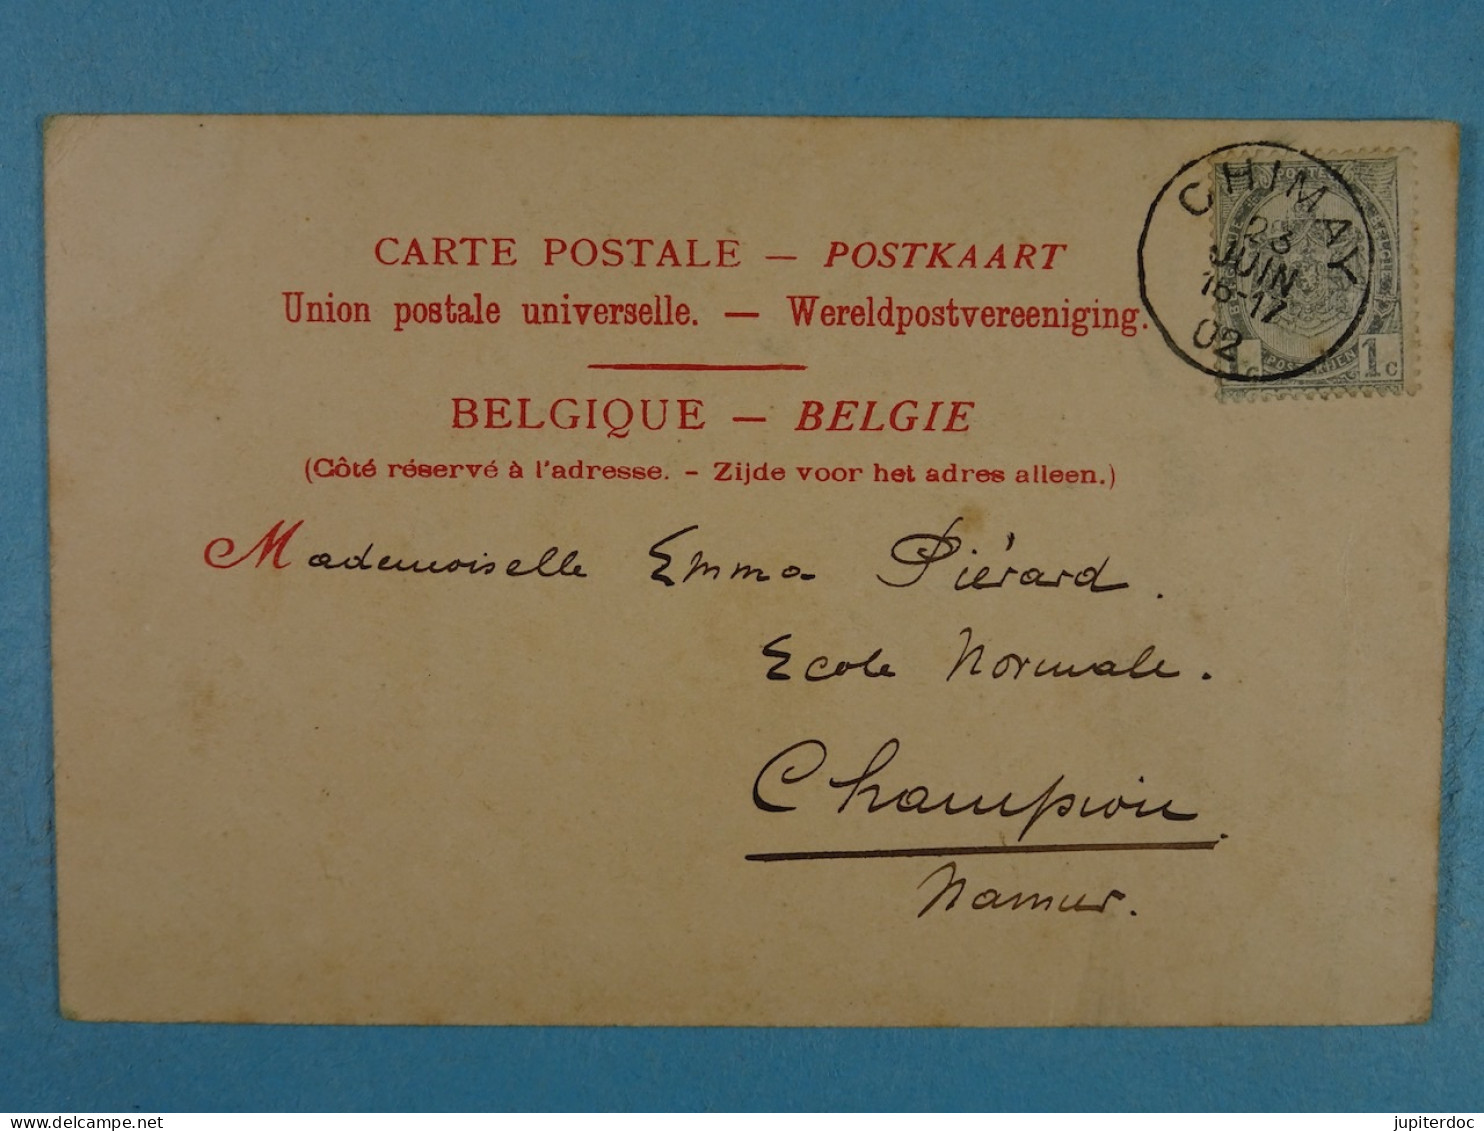 CARTE POSTALE — POSTKAART
Union postale universelle. — Wereldpostvereeniging.
BELGIQUE — BELGIE
(Côté réservé à l'adresse. - Zijde voor het adres alleen.)
CHIMAY
23
JUIN
16-17
02
1c
Mademoiselle Emma Piérard.
Ecole Normale.
Champion.
Namur.
jupiterdoc